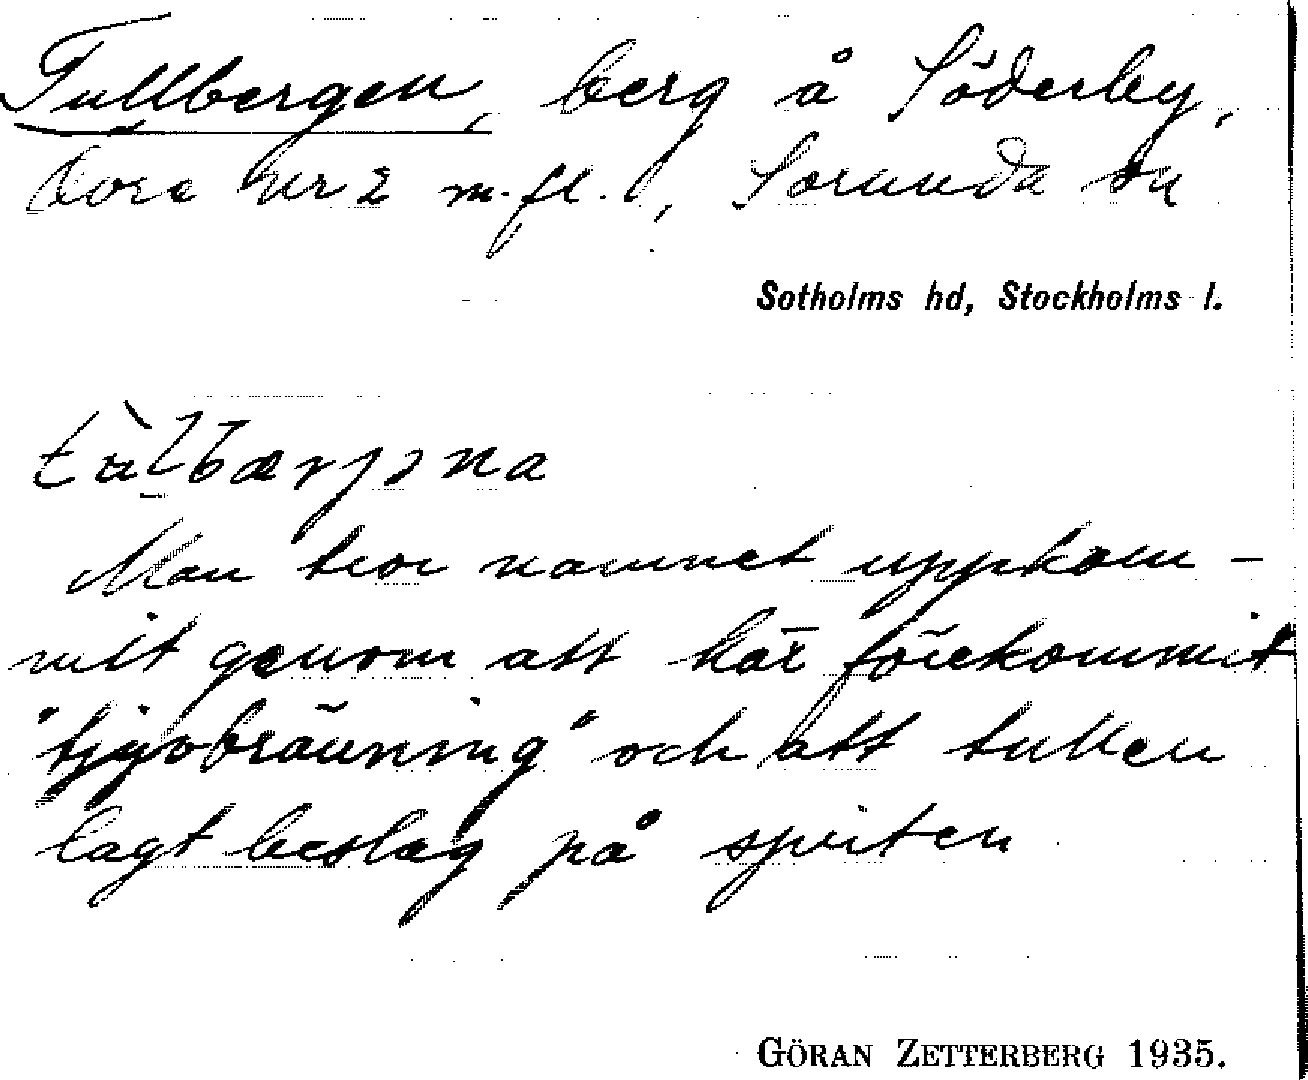 Tullbergen, berg å Söderby,
Tore nr 2 m.fl., Sorunda sn
Sotholms hd, Stockholms l.
Man tror namnet uppkom-
mit genom att här förekommit
"tjyvbränning" och att tullen
lagt beslag på spriten
GÖRAN ZETTERBERG 1935.